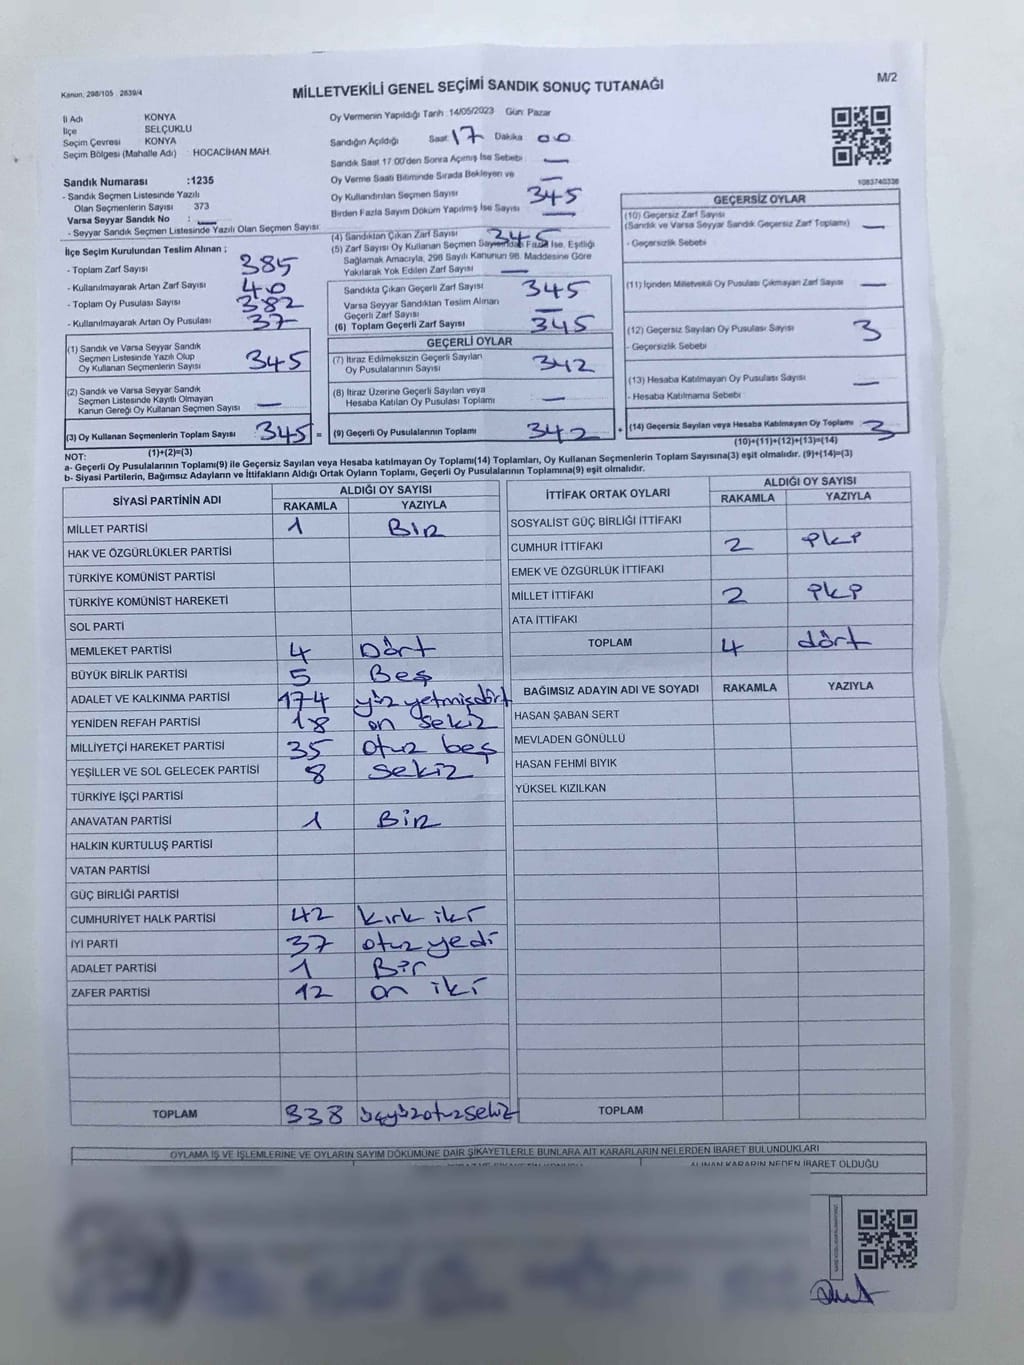 M/2
Kanun, 298/105 2839/4
MİLLETVEKİLİ GENEL SEÇİMİ SANDIK SONUÇ TUTANAĞI
İl Adı KONYA
İlçe SELÇUKLU
Seçim Çevresi KONYA
Seçim Bölgesi (Mahalle Adı) : HOCACİHAN MAH.
Sandık Numarası :1235
- Sandık Seçmen Listesinde Yazılı
Olan Seçmenlerin Sayısı 373
Varsa Seyyar Sandık No : —
- Seyyar Sandık Seçmen Listesinde Yazılı Olan Seçmen Sayısı:
Oy Vermenin Yapıldığı Tarih :14/05/2023 Gün: Pazar
Sandığın Açıldığı Saat: 17 Dakika: 00
Sandık Saat 17:00'den Sonra Açılmış İse Sebebi : —
Oy Verme Saati Bitiminde Sırada Bekleyen ve —
Oy Kullandırılan Seçmen Sayısı 345
Birden Fazla Sayım Döküm Yapılmış İse Sayısı —
1083740336
İlçe Seçim Kurulundan Teslim Alınan ;
- Toplam Zarf Sayısı 385
- Kullanılmayarak Artan Zarf Sayısı 40
- Toplam Oy Pusulası Sayısı 382
- Kullanılmayarak Artan Oy Pusulası 37
(1) Sandık ve Varsa Seyyar Sandık
Seçmen Listesinde Yazılı Olup
Oy Kullanan Seçmenlerin Sayısı 345
(2) Sandık ve Varsa Seyyar Sandık
Seçmen Listesinde Kayıtlı Olmayan
Kanun Gereği Oy Kullanan Seçmen Sayısı —
(3) Oy Kullanan Seçmenlerin Toplam Sayısı 345 =
(1)+(2)=(3)
(4) Sandıktan Çıkan Zarf Sayısı 345
(5) Zarf Sayısı Oy Kullanan Seçmen Sayısından Fazla İse, Eşitliği
Sağlamak Amacıyla, 298 Sayılı Kanunun 98. Maddesine Göre
Yakılarak Yok Edilen Zarf Sayısı —
Sandıkta Çıkan Geçerli Zarf Sayısı 345
Varsa Seyyar Sandıktan Teslim Alınan
Geçerli Zarf Sayısı —
(6) Toplam Geçerli Zarf Sayısı 345
GEÇERLİ OYLAR
(7) İtiraz Edilmeksizin Geçerli Sayılan
Oy Pusulalarının Sayısı 342
(8) İtiraz Üzerine Geçerli Sayılan veya
Hesaba Katılan Oy Pusulası Toplamı —
(9) Geçerli Oy Pusulalarının Toplamı 342 +
GEÇERSİZ OYLAR
(10) Geçersiz Zarf Sayısı
(Sandık ve Varsa Seyyar Sandık Geçersiz Zarf Toplamı) —
- Geçersizlik Sebebi
(11) İçinden Milletvekili Oy Pusulası Çıkmayan Zarf Sayısı —
(12) Geçersiz Sayılan Oy Pusulası Sayısı 3
- Geçersizlik Sebebi
(13) Hesaba Katılmayan Oy Pusulası Sayısı —
- Hesaba Katılmama Sebebi
(14) Geçersiz Sayılan veya Hesaba Katılmayan Oy Toplamı 3
(10)+(11)+(12)+(13)=(14)
NOT:
a- Geçerli Oy Pusulalarının Toplamı(9) ile Geçersiz Sayılan veya Hesaba katılmayan Oy Toplamı(14) Toplamları, Oy Kullanan Seçmenlerin Toplam Sayısına(3) eşit olmalıdır. (9)+(14)=(3)
b- Siyasi Partilerin, Bağımsız Adayların ve İttifakların Aldığı Ortak Oyların Toplamı, Geçerli Oy Pusulalarının Toplamına(9) eşit olmalıdır.
SİYASİ PARTİNİN ADI ALDIĞI OY SAYISI
RAKAMLA YAZIYLA
MİLLET PARTİSİ 1 Bir
HAK VE ÖZGÜRLÜKLER PARTİSİ
TÜRKİYE KOMÜNİST PARTİSİ
TÜRKİYE KOMÜNİST HAREKETİ
SOL PARTİ
MEMLEKET PARTİSİ 4 Dört
BÜYÜK BİRLİK PARTİSİ 5 Beş
ADALET VE KALKINMA PARTİSİ 174 yüz yetmişdört
YENİDEN REFAH PARTİSİ 18 on sekiz
MİLLİYETÇİ HAREKET PARTİSİ 35 otuz beş
YEŞİLLER VE SOL GELECEK PARTİSİ 8 sekiz
TÜRKİYE İŞÇİ PARTİSİ
ANAVATAN PARTİSİ 1 Bir
HALKIN KURTULUŞ PARTİSİ
VATAN PARTİSİ
GÜÇ BİRLİĞİ PARTİSİ
CUMHURİYET HALK PARTİSİ 42 kırk iki
İYİ PARTİ 37 otuz yedi
ADALET PARTİSİ 1 Bir
ZAFER PARTİSİ 12 on iki
TOPLAM 338 üçyüzotuzsekiz
İTTİFAK ORTAK OYLARI ALDIĞI OY SAYISI
RAKAMLA YAZIYLA
SOSYALİST GÜÇ BİRLİĞİ İTTİFAKI
CUMHUR İTTİFAKI 2 iki
EMEK VE ÖZGÜRLÜK İTTİFAKI
MİLLET İTTİFAKI 2 iki
ATA İTTİFAKI
TOPLAM 4 dört
BAĞIMSIZ ADAYIN ADI VE SOYADI RAKAMLA YAZIYLA
HASAN ŞABAN SERT
MEVLADEN GÖNÜLLÜ
HASAN FEHMİ BIYIK
YÜKSEL KIZILKAN
TOPLAM
OYLAMA İŞ VE İŞLEMLERİNE VE OYLARIN SAYIM DÖKÜMÜNE DAİR ŞİKAYETLERLE BUNLARA AİT KARARLARIN NELERDEN İBARET BULUNDUKLARI
ALINAN KARARIN NEDEN İBARET OLDUĞU